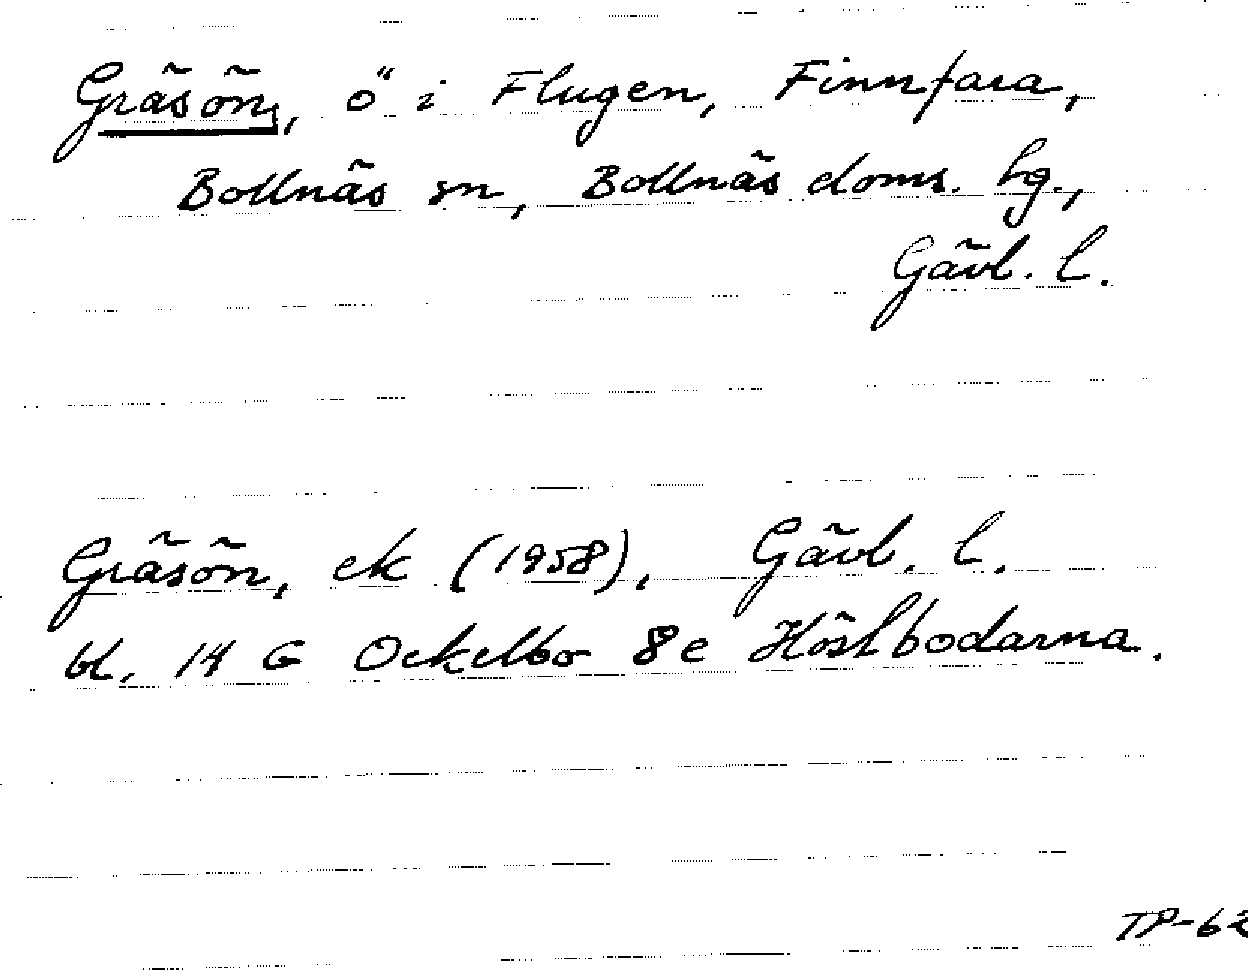 Gräsön, ö i Flugen, Finnfara,
Bollnäs sn, Bollnäs doms. hg.,
Gävl. l.
Gräsön, ek (1958), Gävl. l.
bl. 14 G Ockelbo 8e Höstbodarna.
TP-62